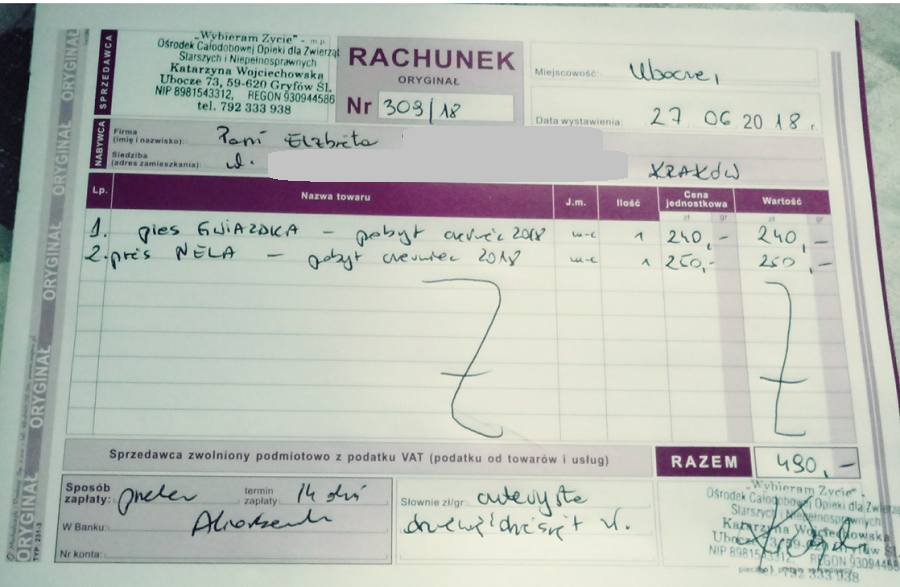 ORYGINAŁ
ORYGINAŁ
ORYGINAŁ
ORYGINAŁ
ORYGINAŁ
SPRZEDAWCA
„Wybieram Życie" - m.p.
Ośrodek Całodobowej Opieki dla Zwierząt
Starszych i Niepełnosprawnych
Katarzyna Wojciechowska
Ubocze 73, 59-620 Gryfów Śl.
NIP 8981543312, REGON 930944586
tel. 792 333 938
RACHUNEK
ORYGINAŁ
Nr 309/18
Miejscowość: Ubocze,
Data wystawienia: 27 06 2018 r.
NABYWCA
Firma (imię i nazwisko): Pani Elżbieta
Siedziba (adres zamieszkania): ul. KRAKÓW
Lp. Nazwa towaru J.m. Ilość Cena jednostkowa Wartość
zł gr zł gr
1. pies GWIAZDKA – pobyt czerwiec 2018 m-c 1 240,- 240,-
2. pies NELA – pobyt czerwiec 2018 m-c 1 250,- 250,-
Sprzedawca zwolniony podmiotowo z podatku VAT (podatku od towarów i usług)
RAZEM 490,-
Sposób zapłaty: przelew termin zapłaty 14 dni
W Banku:
Nr konta:
Słownie zł/gr czterysta
dziewięćdziesiąt zł.
„Wybieram Życie" -
Ośrodek Całodobowej Opieki dla Zwierząt
Starszych i Niepełnosprawnych
Katarzyna Wojciechowska
Ubocze 73, 59-620 Gryfów Śl.
NIP 8981543312, REGON 930944586
tel. 792 333 938